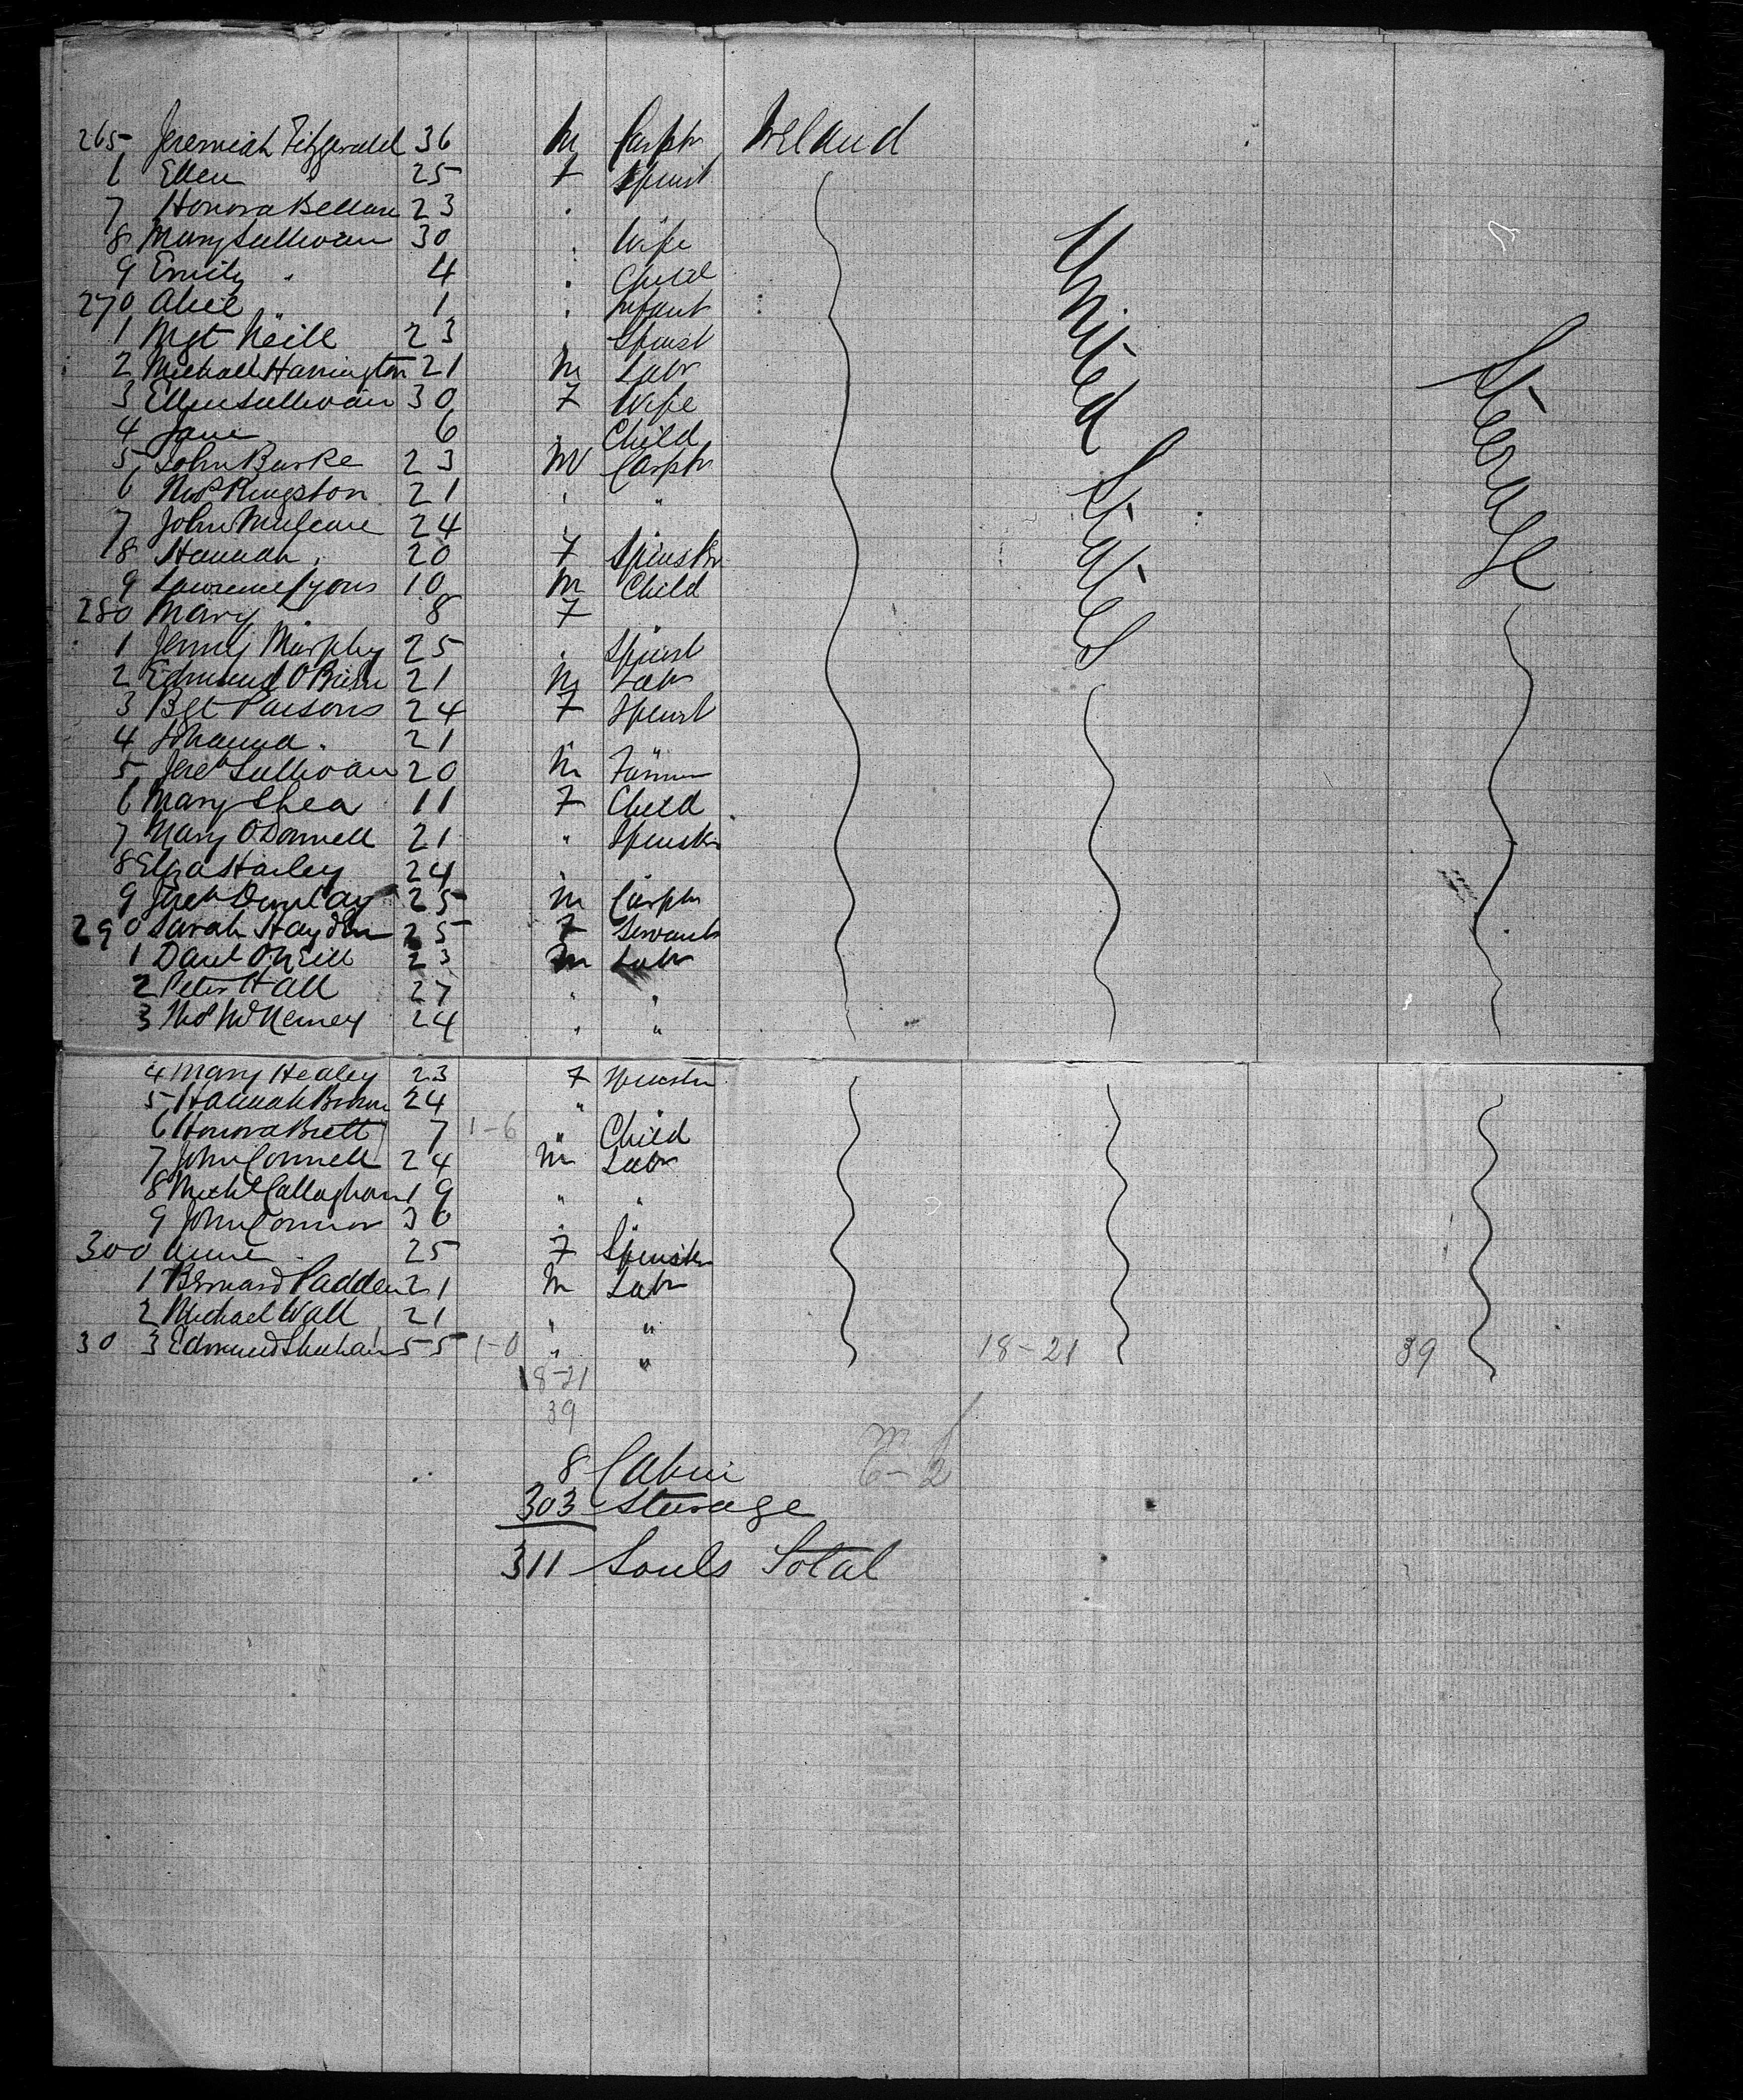 265 Jeremiah Fitzgerald 36 M Carptr Ireland
6 Ellen " 25 F Spinst
7 Honora 23 "
8 Mary Sullivan 30 " Wife
9 Emily " 4 " Child
270 Alice " 1 " Infant
1 Mgt Neill 23 " Spinst
2 Michael Harrington 21 M Labr
3 Ellen Sullivan 30 F Wife
4 Jane 6 " Child
5 John Burke 23 M Carptr
6 Thos Kingston 21 " "
7 John Mulcare 24 " "
8 Hannah " 20 F Spinster
9 Lawrence Lyons 10 M Child
280 Mary " 8 F "
1 Jenny Murphy 25 " Spinst
2 Edmund O'Brien 21 M Labr
3 Bgt Parsons 24 F Spinst
4 Johanna " 21 " "
5 Jereh Sullivan 20 M Farmer
6 Mary Shea 11 F Child
7 Mary O'Donnell 21 " Spinster
8 Eliza Harley 24 " "
9 Jereh 25 M Carptr
290 Sarah Hayden 25 F Servant
1 Danl O'Neill 23 M Labr
2 Peter Hall 27 " "
3 Thos McNerney 24 " "
United States
Steerage
4 Mary Healey 23 F Spinster
5 Hannah 24 " "
6 Honora Brett 7 1-6 " Child
7 John Connell 24 M Labr
8 Michl Callaghan 19 " "
9 John Connor 30 " "
300 Anne " 25 F Spinster
1 Bernard Padden 21 M Labr
2 Michael Wall 21 " "
30 3 Edmund Sheehan 55 1-0 " " 18-21 39
18-21
39
m f
6-2
8 Cabin
303 Steerage
311 Souls Total